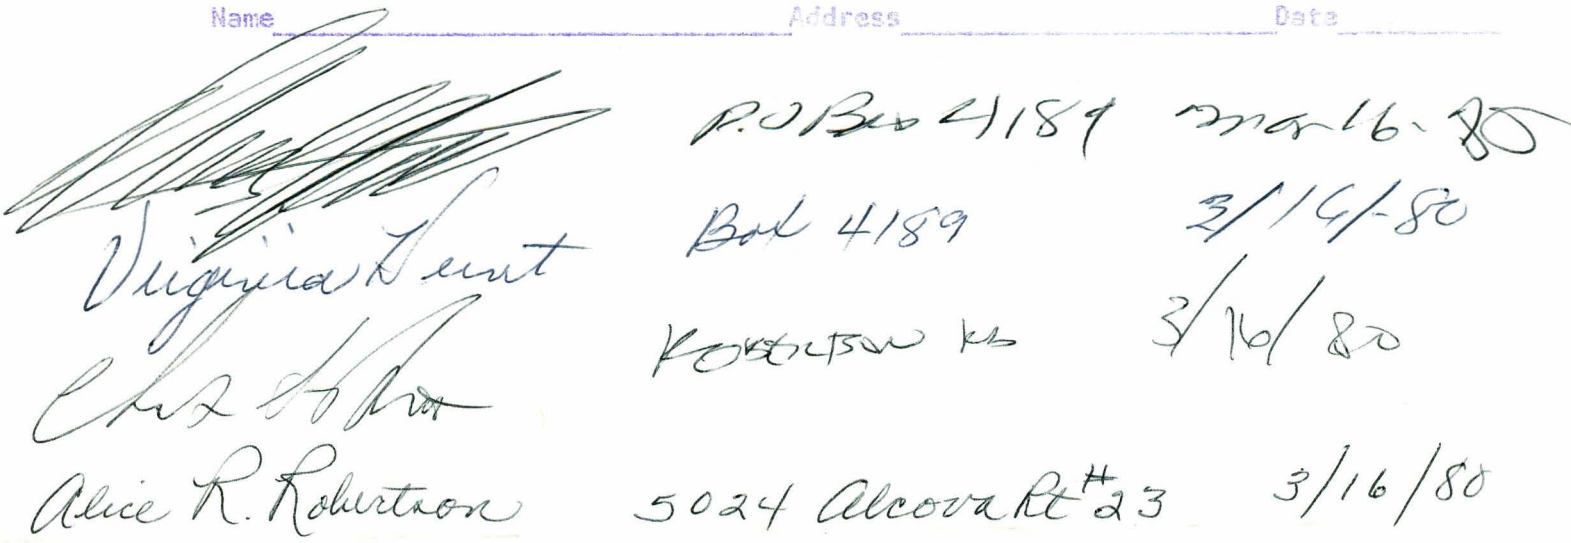 Name Address Date
P.O Box 4189 Mar 16-80
Virginia Hunt Box 4189 3/16/-80
Robertson Rd 3/16/80
Alice R. Robertson 5024 Alcova Rt #23 3/16/80